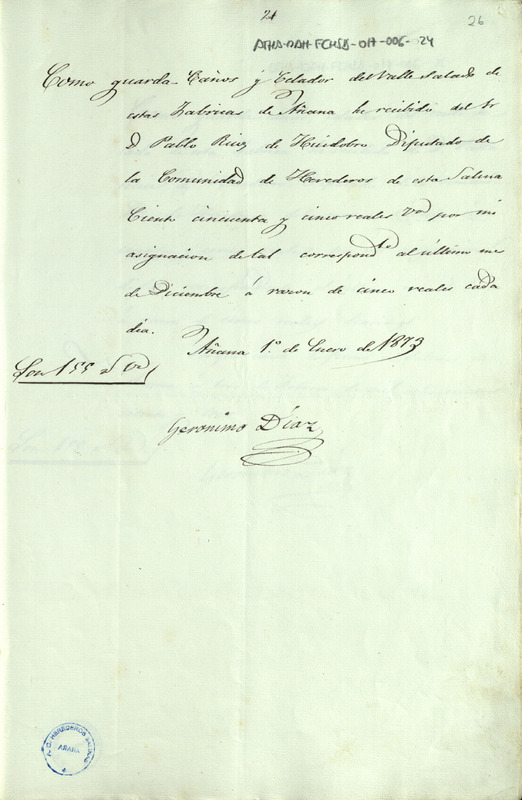 24
26
ATHA-DAH-FCHSB-OH-006-24
Como guarda Caños y Celador del Valle Salado de
estas Fabricas de Añana he recibido del Sr
D Pablo Ruiz de Huidobro Diputado de
la Comunidad de Herederos de esta Salina
Ciento cincuenta y cinco reales Vn por mi
asignacion de tal correspondte al último me
de Diciembre á razon de cinco reales cada
dia.
Añana 1.º de Enero de 1873
Son 155 rs vn
Geronimo Díaz
HEREDEROS
AÑANA